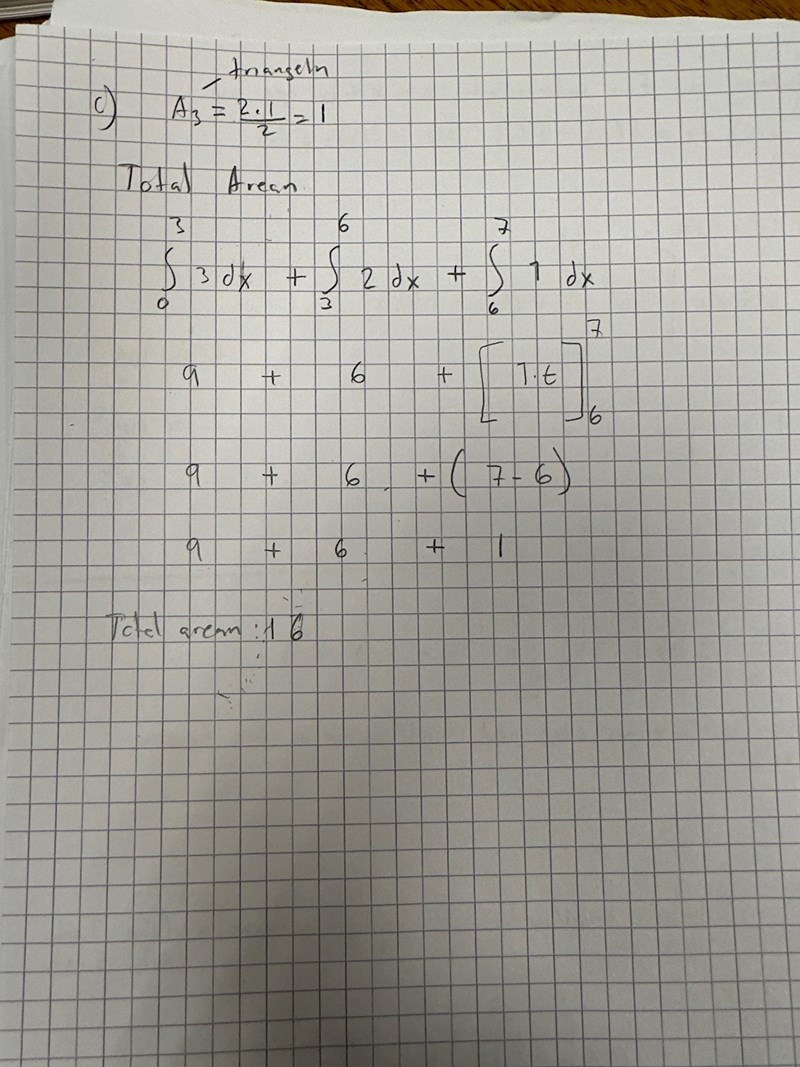 triangeln
c) A₃ = 2·1/2 = 1
Total Arean
∫₀³ 3 dx + ∫₃⁶ 2 dx + ∫₆⁷ 1 dx
9 + 6 + [1·t]₆⁷
9 + 6 + (7-6)
9 + 6 + 1
Total arean: 16